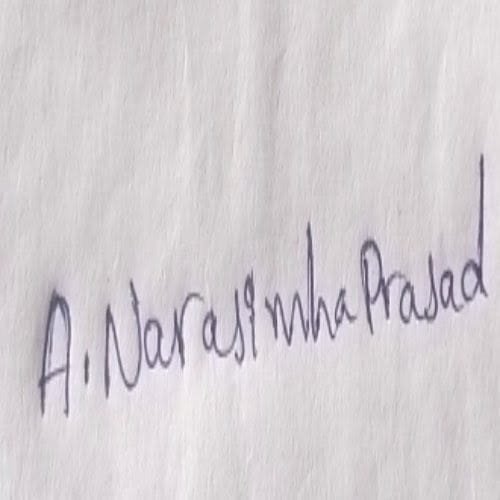 A. Narasimha Prasad